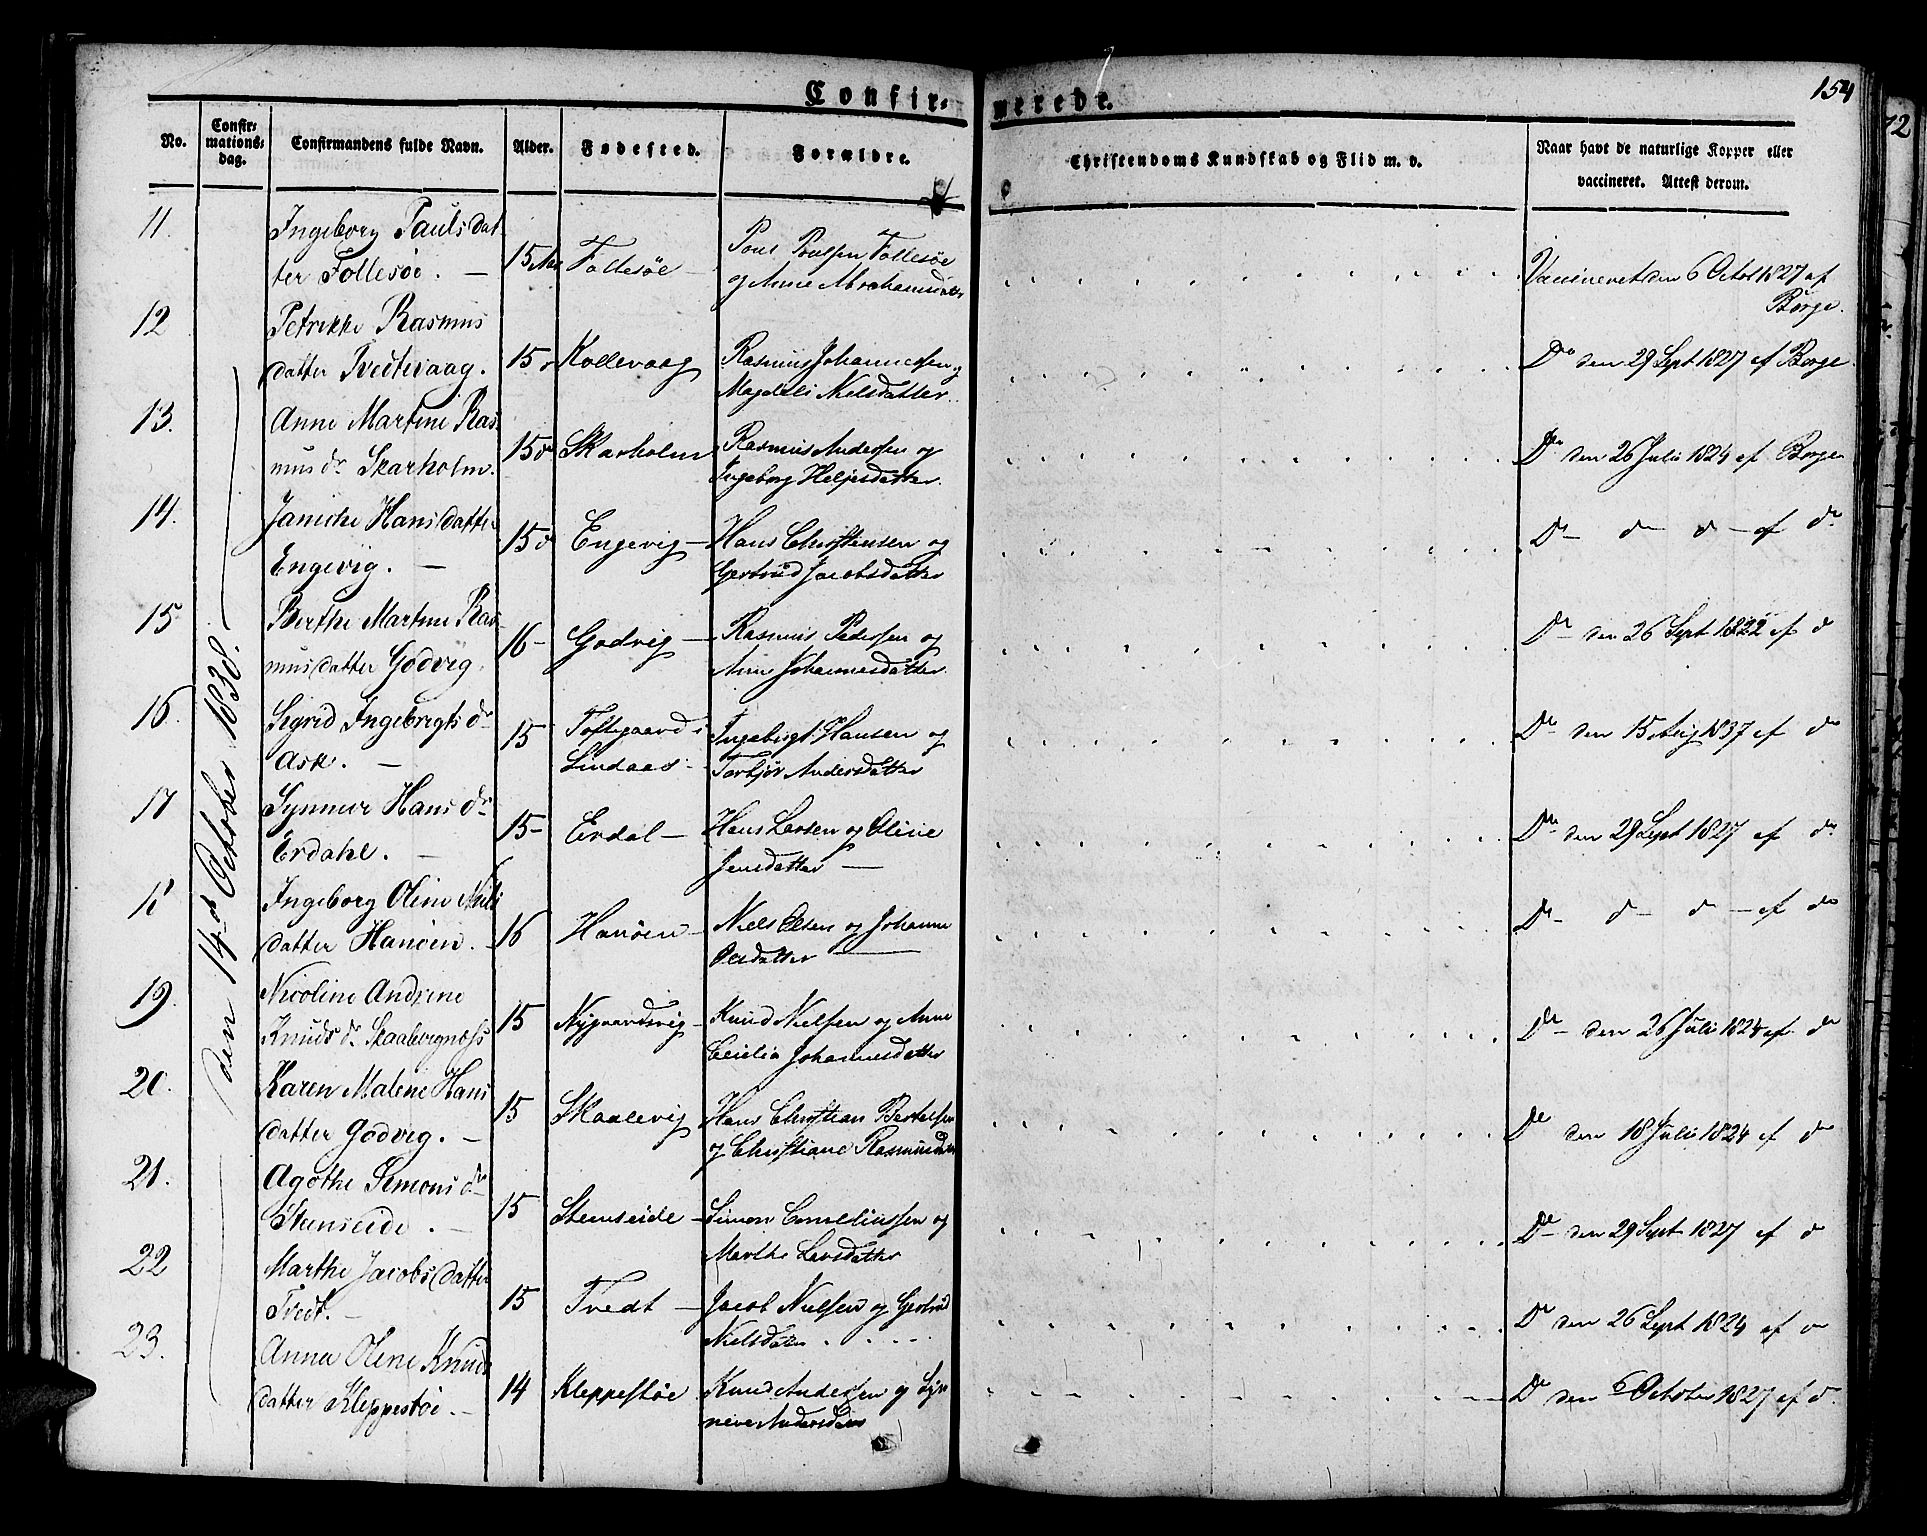 Confir-
merede.
154
No.
Confir-
mations-
dag.
Confirmandens fulde Navn.
Alder.
Fødested.
Forældre.
Christendoms Kundskab og Flid m. v.
Naar havt de naturlige Kopper eller
vaccineret. Attest derom.
den 14de October 1838.
11.
Ingeborg Pauls dat
ter Follesøe. —
15
Follesøe —
Poul Poulsen Follesøe
og Anne Abrahamsdatter
Vaccineret den 6 Octob 1827 af
Børge.
12
Petrikke Rasmus
datter Tvedtevaag.
15
Kollevaag
Rasmus Johannesen og
Magdeli Nielsdatter
Do den 29 Sept 1827 af Børge
13.
Anne Martine Ras
mus dr Skarholm.
15
Skarholm
Rasmus Andersen og
Ingeborg Heljesdatter.
Do den 26 Juli 1824 af Børge
14.
Janiche Hansdatter
Engevig. —
15
Engevig —
Hans Christensen og
Gertrud Jacobsdatter
Do — do — do — af do
15
Berthe Martine Ras
musdatter Godvig.
16 —
Godvig —
Rasmus Pedersen og
Anne Johannesdatter.
Do — den 26 Sept 1822 af do
16.
Sigrid Ingebrigts dr
Ask. —
15
Toftegaard i
Lindaas —
Ingebrigt Hansen og
Torbjør Andersdatter
Do den 15 Aug 1837 af do
17
Synneve Hans dr
Erdahl. —
15 —
Erdal —
Hans Larsen og Oline
Jensdatter —
Do den 29 Sept 1827 af do
18
Ingeborg Oline Niels
datter Hanøen. —
16
Hanøen —
Niels Olsen og Johanne
Olesdatter —
Do — do — do — af do
19.
Nicoline Andrine
Knuds dr Skaalevignæss
15
Nygaardsvig —
Knud Nielsen og Anne
Cecilia Johannesdatter
Do — den 26 Juli 1824 af do
20.
Karen Malene Hans
datter Godvig. —
15
Skaalevig
Hans Christian Bertelsen
og Christiane Rasmusdatter
Do den 18 Juli 1824 af do
21.
Agathe Simons dr
Stenseide. —
15
Stenseide —
Simon Corneliussen og
Marthe Larsdatter
Do — den 29 Sept 1827 af do
22
Marthe Jacobsdatter
Tvedt. —
15
Tvedt —
Jacob Nielsen og Gertrud
Nielsdatter
Do den 26 Sept 1824 af do
23.
Anna Oline Knuds
datter Kleppestøe. —
14
Kleppestøe
Knud Andersen og Syn
neve Andersdatter
Do den 6 October 1827 af do.